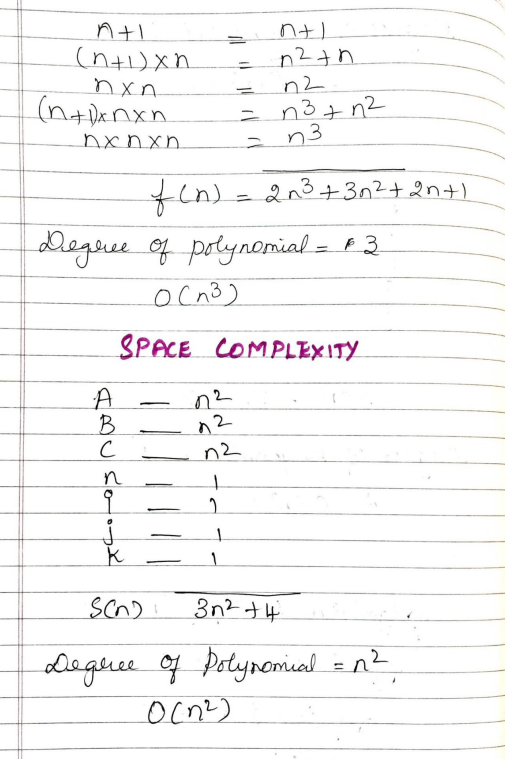 n+1 = n+1
(n+1)×n = n²+n
n×n = n²
(n+1)×n×n = n³+n²
n×n×n = n³
f(n) = 2n³+3n²+2n+1
Degree of polynomial = 3
O(n³)
SPACE COMPLEXITY
A — n²
B — n²
C — n²
n — 1
i — 1
j — 1
k — 1
S(n) 3n²+4
Degree of Polynomial = n²
O(n²)